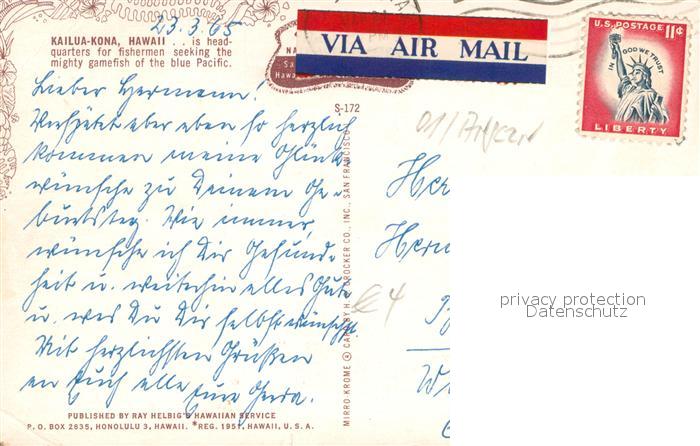 23.3.65
KAILUA-KONA, HAWAII . . is head-
quarters for fishermen seeking the
mighty gamefish of the blue Pacific.
VIA AIR MAIL
U.S. POSTAGE 11¢
IN GOD WE TRUST
LIBERTY
Lieber Hermann!
Verspätet aber eben so herzlich
kommen meine Glück
wünsche zu Deinem Ge-
burtstag. Wie immer,
wünsche ich Dir Gesund-
heit u. weiterhin alles Gute
u. was Du Dir selbst wünschst.
Mit herzlichsten Grüßen
an Euch alle Eure Gerda.
S-172
MIRRO-KROME ® CARD BY H. S. CROCKER CO., INC., SAN FRANCISCO
Her
Her
privacy protection
Datenschutz
PUBLISHED BY RAY HELBIG'S HAWAIIAN SERVICE
P. O. BOX 2835, HONOLULU 3, HAWAII. *REG. 1951, HAWAII, U. S. A.